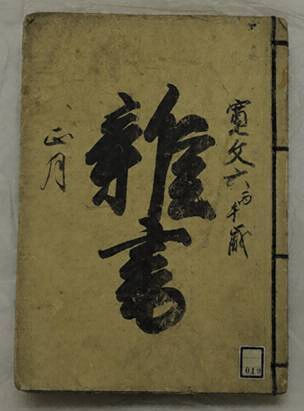 寛文六丙午歳
雜書
正月
019